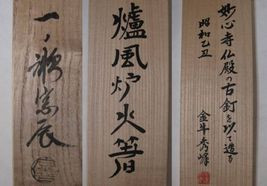 一ノ瀬宗辰
爐風炉火箸
妙心寺仏殿の古釘を以て造る
昭和乙丑
金牛秀峰